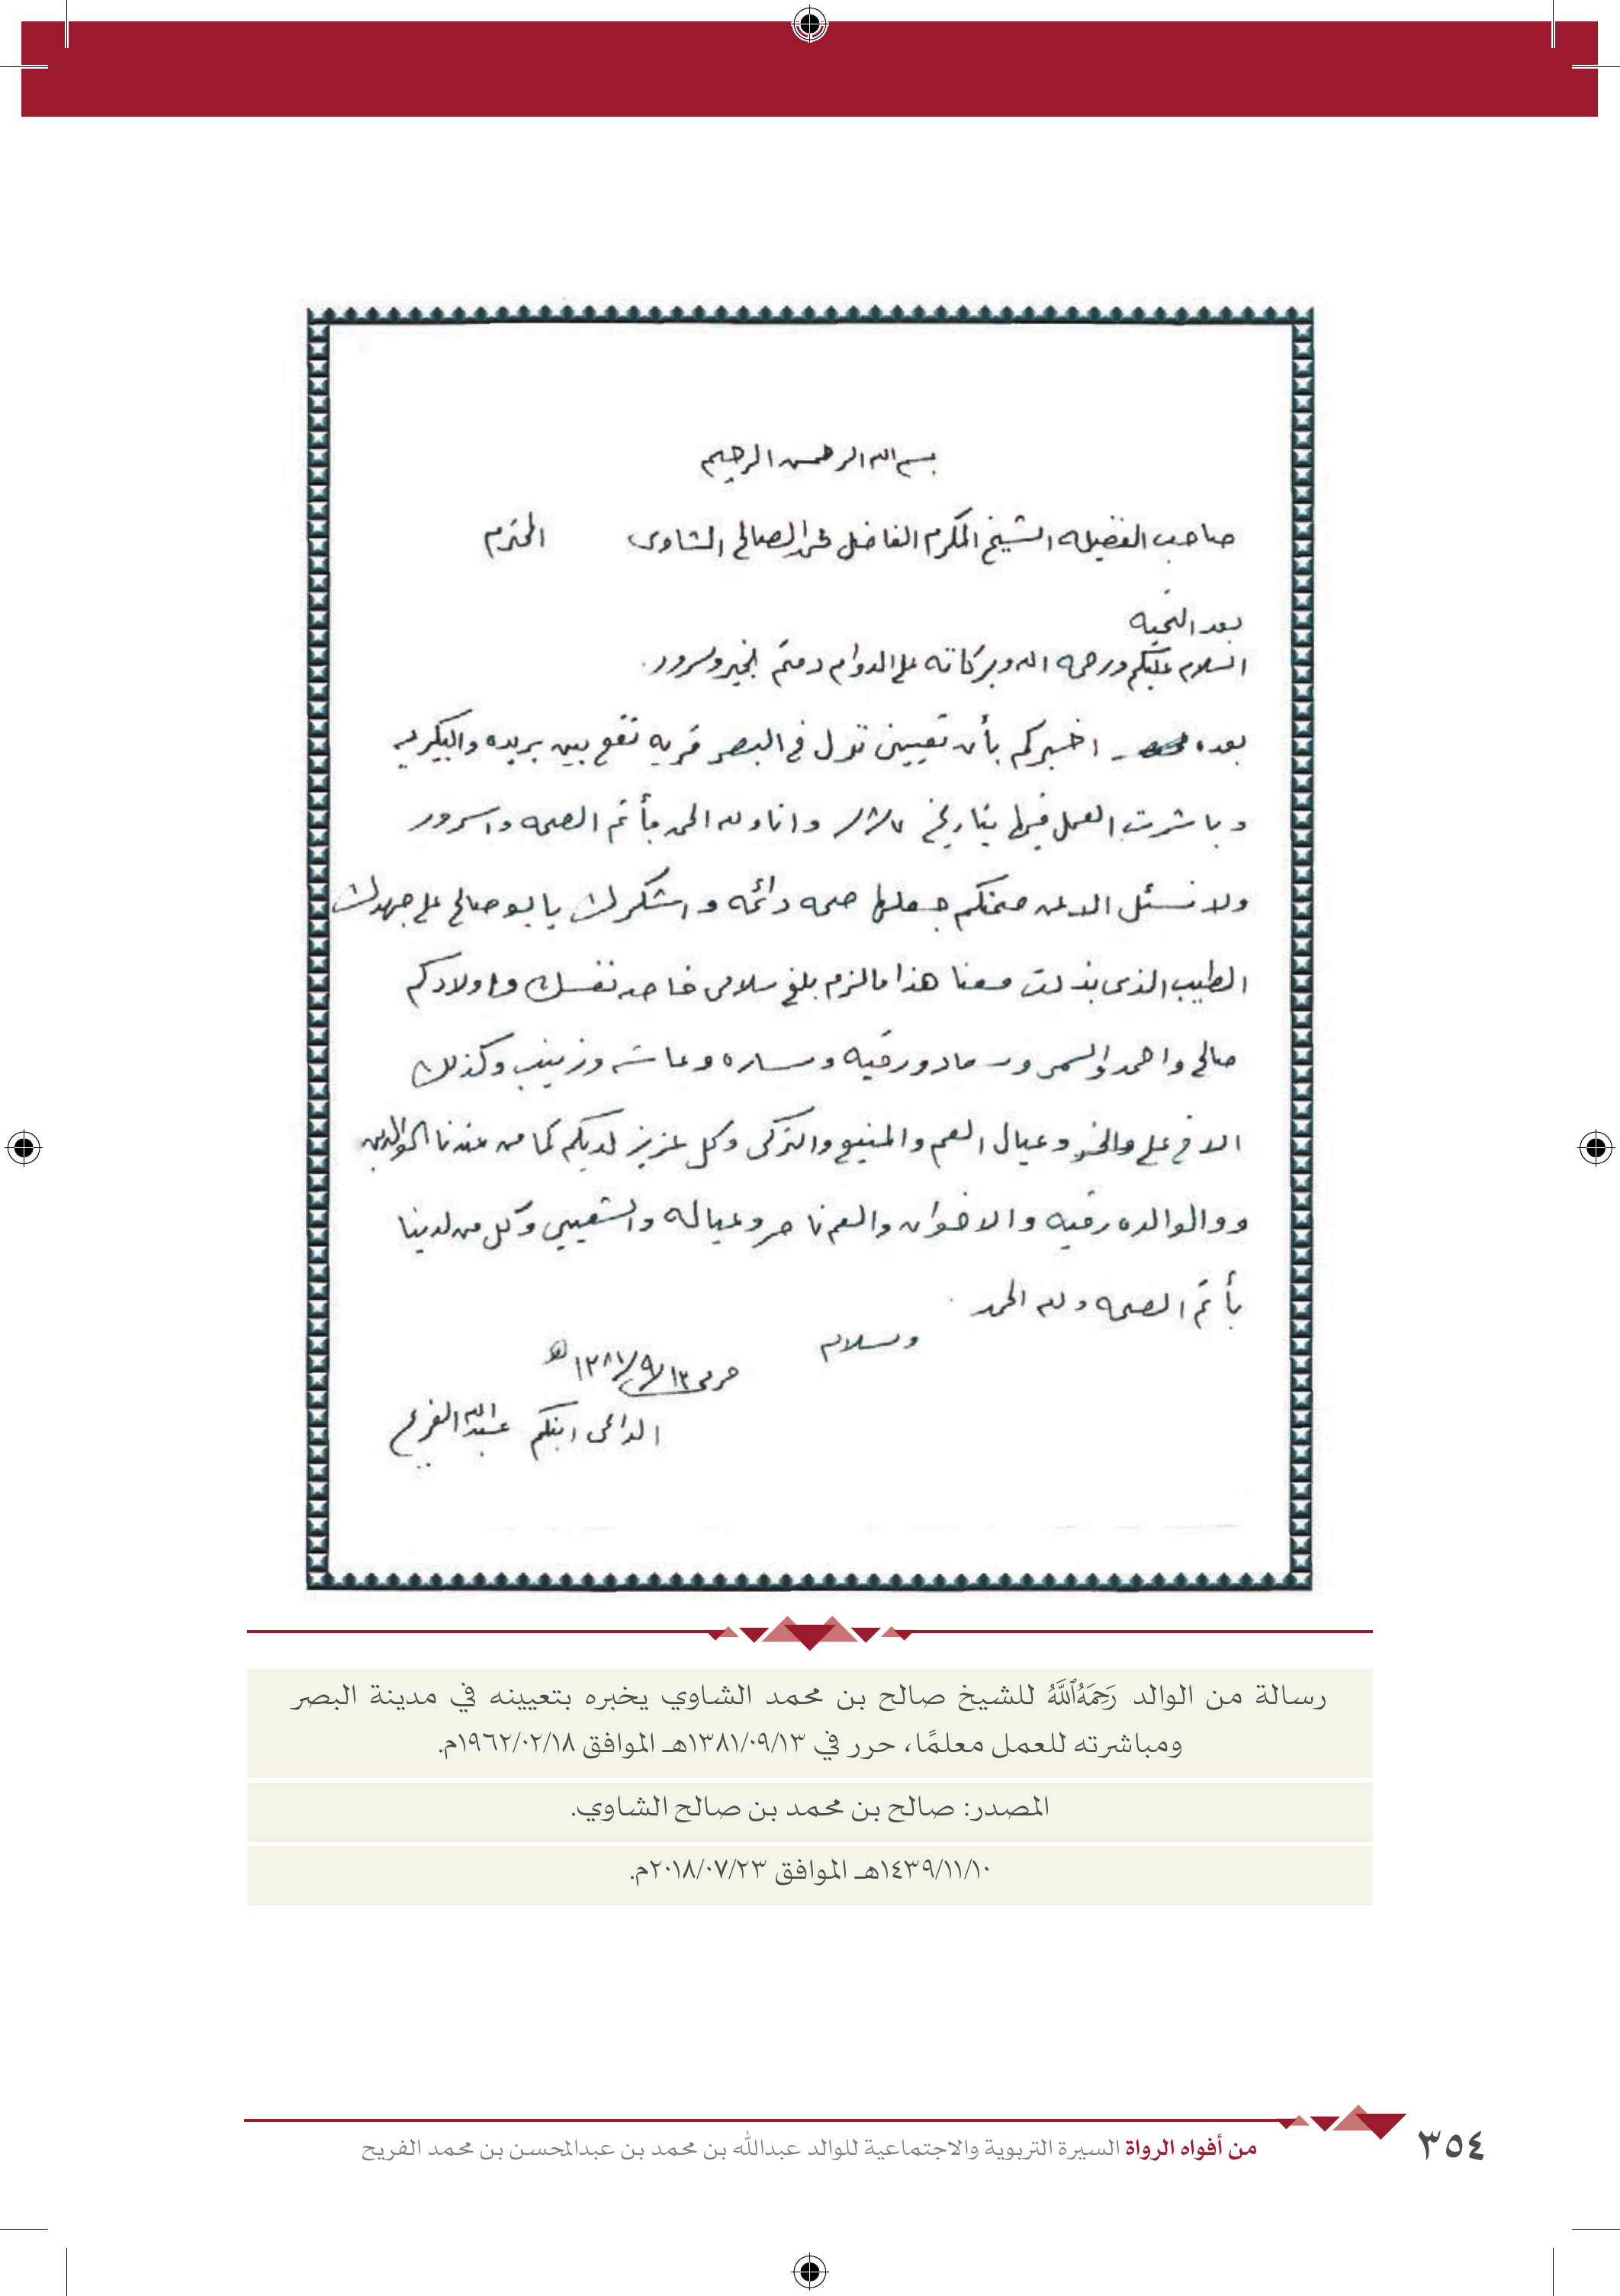 بسم الله الرحمن الرحيم
صاحب الفضيله الشيخ المكرم الفاضل محمد الصالح الشاوى المحترم
بعد التحيه
السلام عليكم ورحمه الله وبركاته على الدوام دمتم بخير وسرور.
بعده اخبركم بأن تعيينى نزل في البصر قريه تقع بين بريده والبكيريه
وباشرت العمل فيها بتاريخ ٨/٧ وانا ولله الحمد بأتم الصحه واسرور
ولا نسئل الا عن صحتكم جعلها صحه دائمه واشكرك يابو صالح على جهدك
الطيب الذى بذلت معنا هذا مالزم بلغ سلامى خاصه نفسك واولادكم
صالح واحمد ورقيه وساره وعائشه وزينب وكذلك
الاخ على وعيال العم والمنيع والتركى وكل عزيز لديكم كما من عندنا الوالدين
ووالوالده رقيه والاخوان والعم ناصر وعياله والشعيبي وكل من لدينا
بأتم الصحه ولله الحمد.
وسلام
حرر فى ١٣/٩/١٣٨١هـ
الداعى ابنكم عبدالله الفريح
رسالة من الوالد رَحِمَهُ ٱللَّهُ للشيخ صالح بن محمد الشاوي يخبره بتعيينه في مدينة البصر
ومباشرته للعمل معلمًا، حرر في ١٣٨١/٠٩/١٣هـ الموافق ١٩٦٢/٠٢/١٨م.
المصدر: صالح بن محمد بن صالح الشاوي.
١٤٣٩/١١/١٠هـ الموافق ٢٠١٨/٠٧/٢٣م.
من أفواه الرواة السيرة التربوية والاجتماعية للوالد عبدالله بن محمد بن عبدالمحسن بن محمد الفريح
٣٥٤